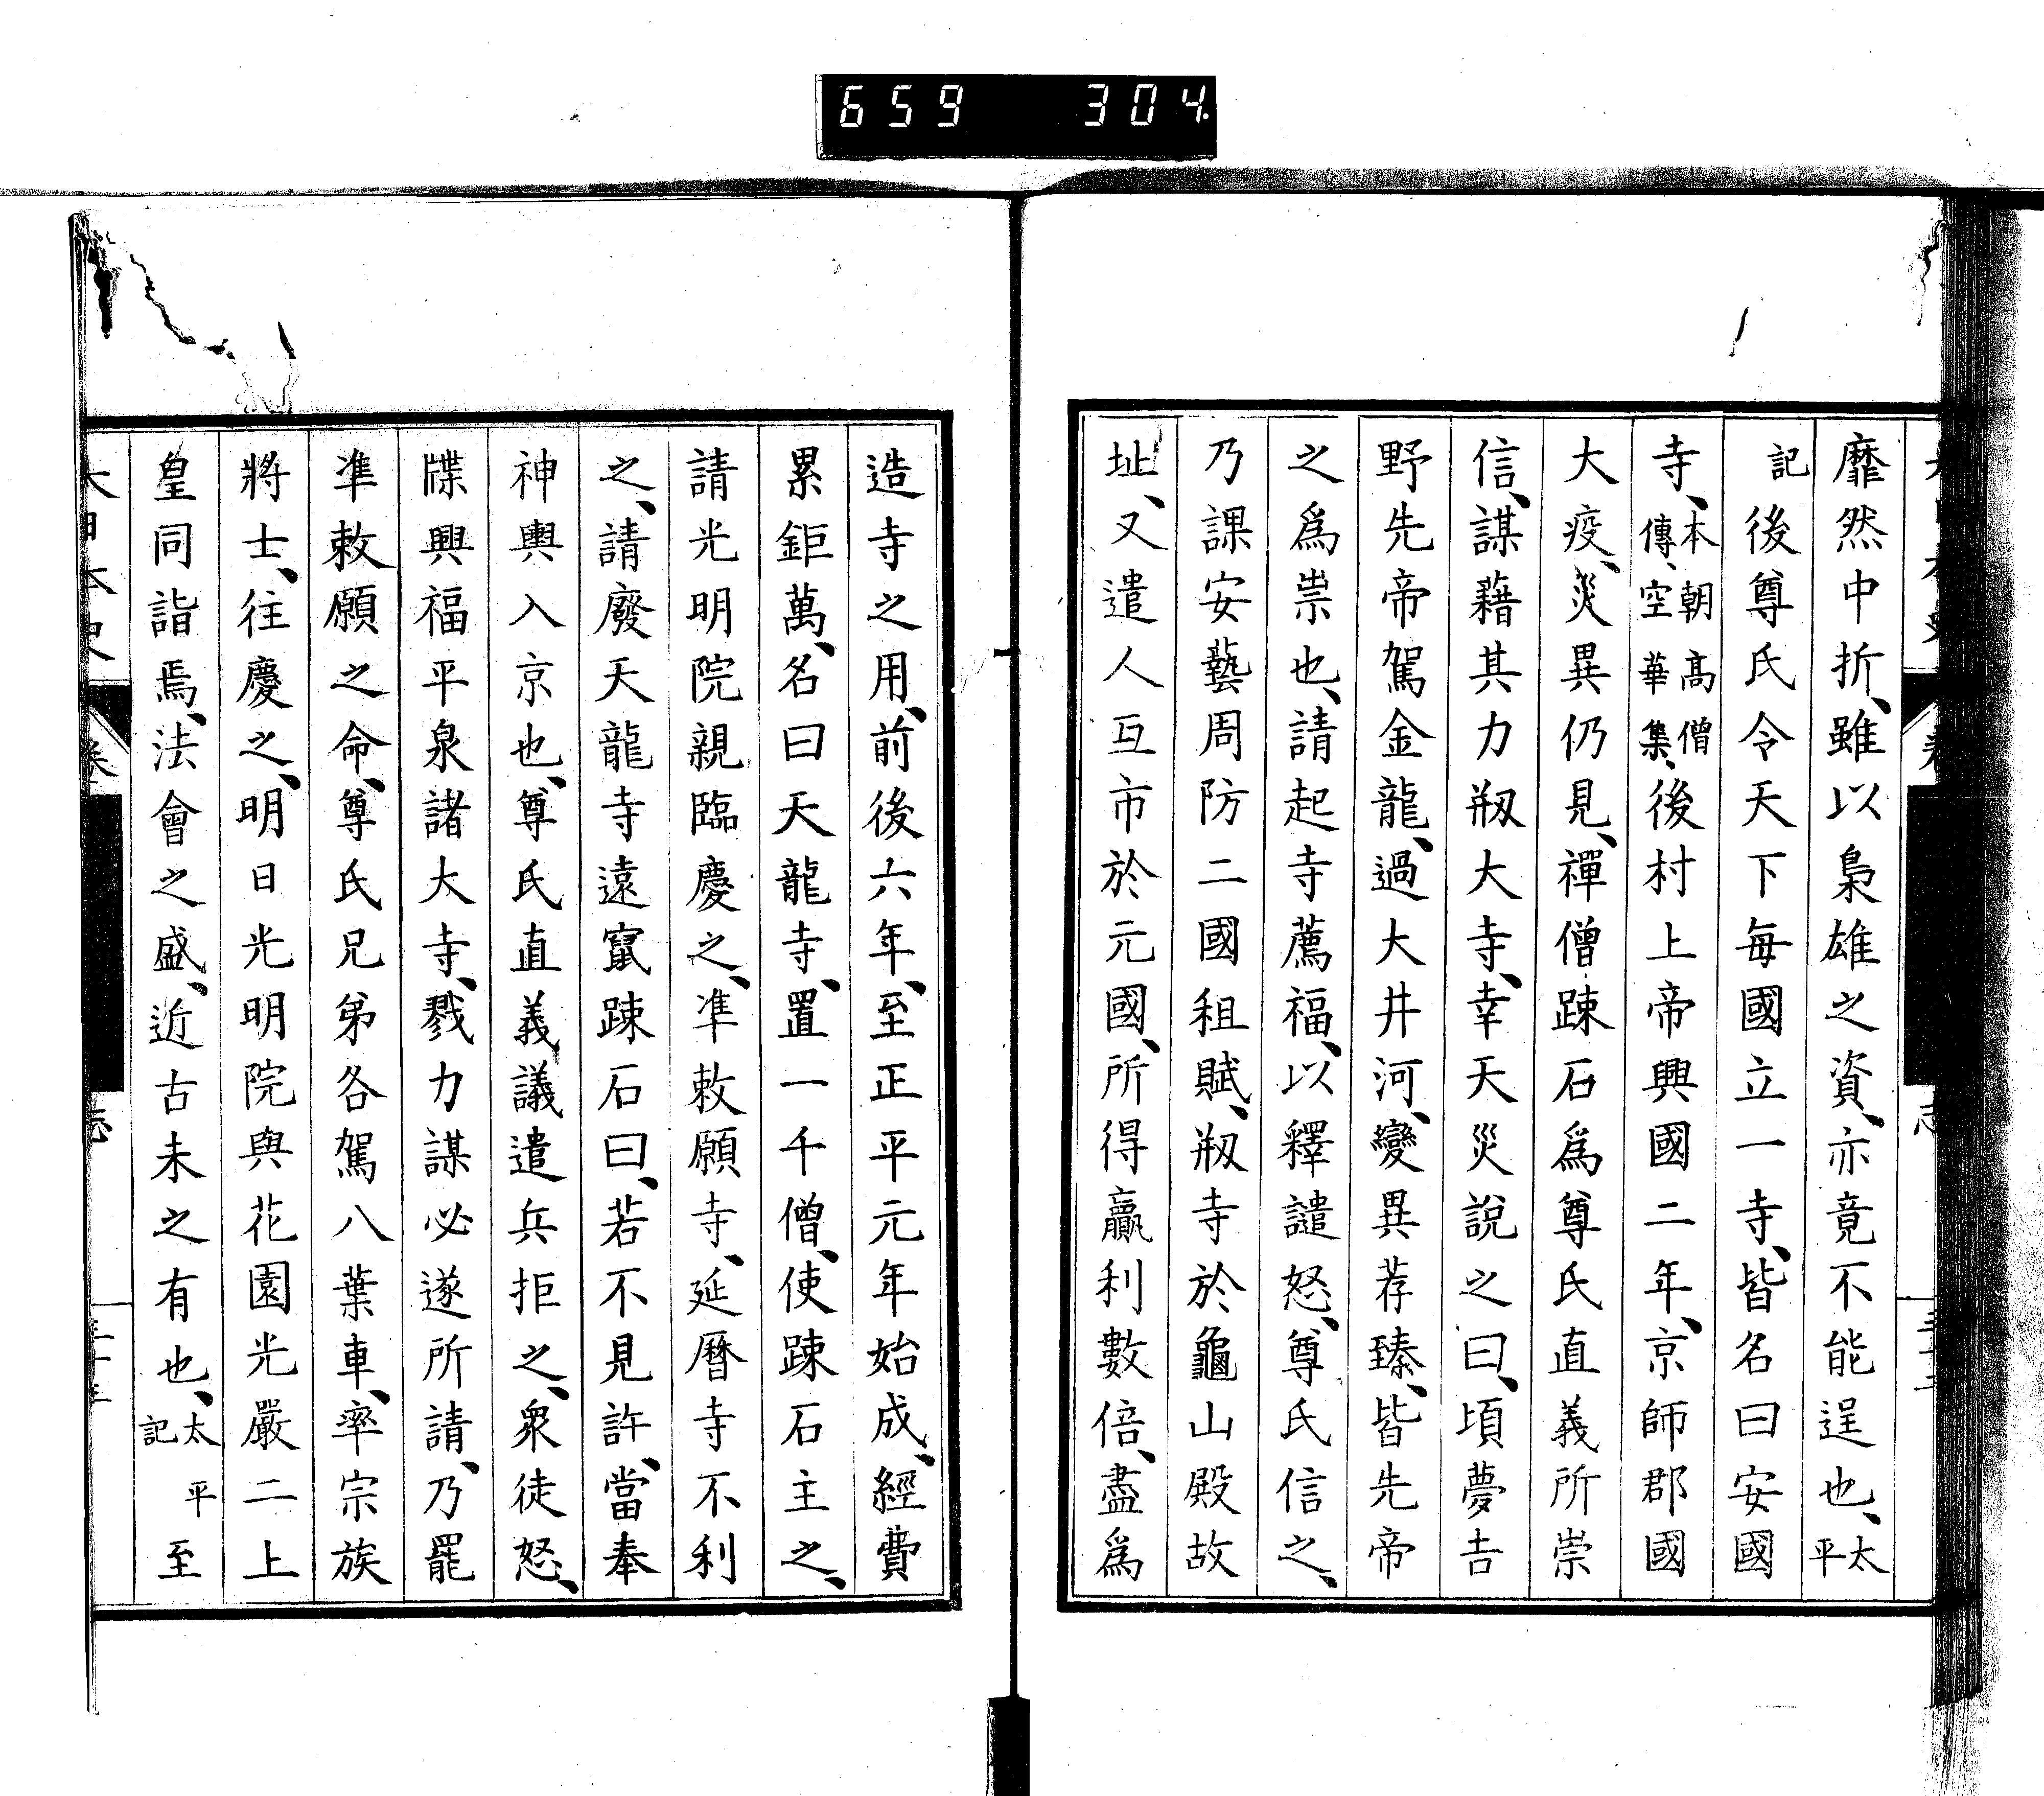 659 304
靡然中折、雖以梟雄之資、亦竟不能逞也、太平
記後尊氏令天下每國立一寺、皆名曰安國
寺、本朝高僧傳、空華集、後村上帝興國二年、京師郡國
大疫、災異仍見、禪僧踈石爲尊氏直義所崇
信、謀藉其力剏大寺、幸天災說之曰、頃夢吉
野先帝駕金龍、過大井河、變異荐臻、皆先帝
之爲祟也、請起寺薦福、以釋譴怒、尊氏信之、
乃課安藝周防二國租賦、剏寺於龜山殿故
址、又遣人互市於元國、所得贏利數倍、盡爲
造寺之用、前後六年、至正平元年始成、經費
累鉅萬、名曰天龍寺、置一千僧、使踈石主之、
請光明院親臨慶之、準敕願寺、延曆寺不利
之、請廢天龍寺遠竄踈石曰、若不見許、當奉
神輿入京也、尊氏直義議遣兵拒之、衆徒怒、
牒興福平泉諸大寺、戮力謀必遂所請、乃罷
準敕願之命、尊氏兄弟各駕八葉車、率宗族
將士、往慶之、明日光明院與花園光嚴二上
皇同詣焉、法會之盛、近古未之有也、太平記至
大日本史 卷 志